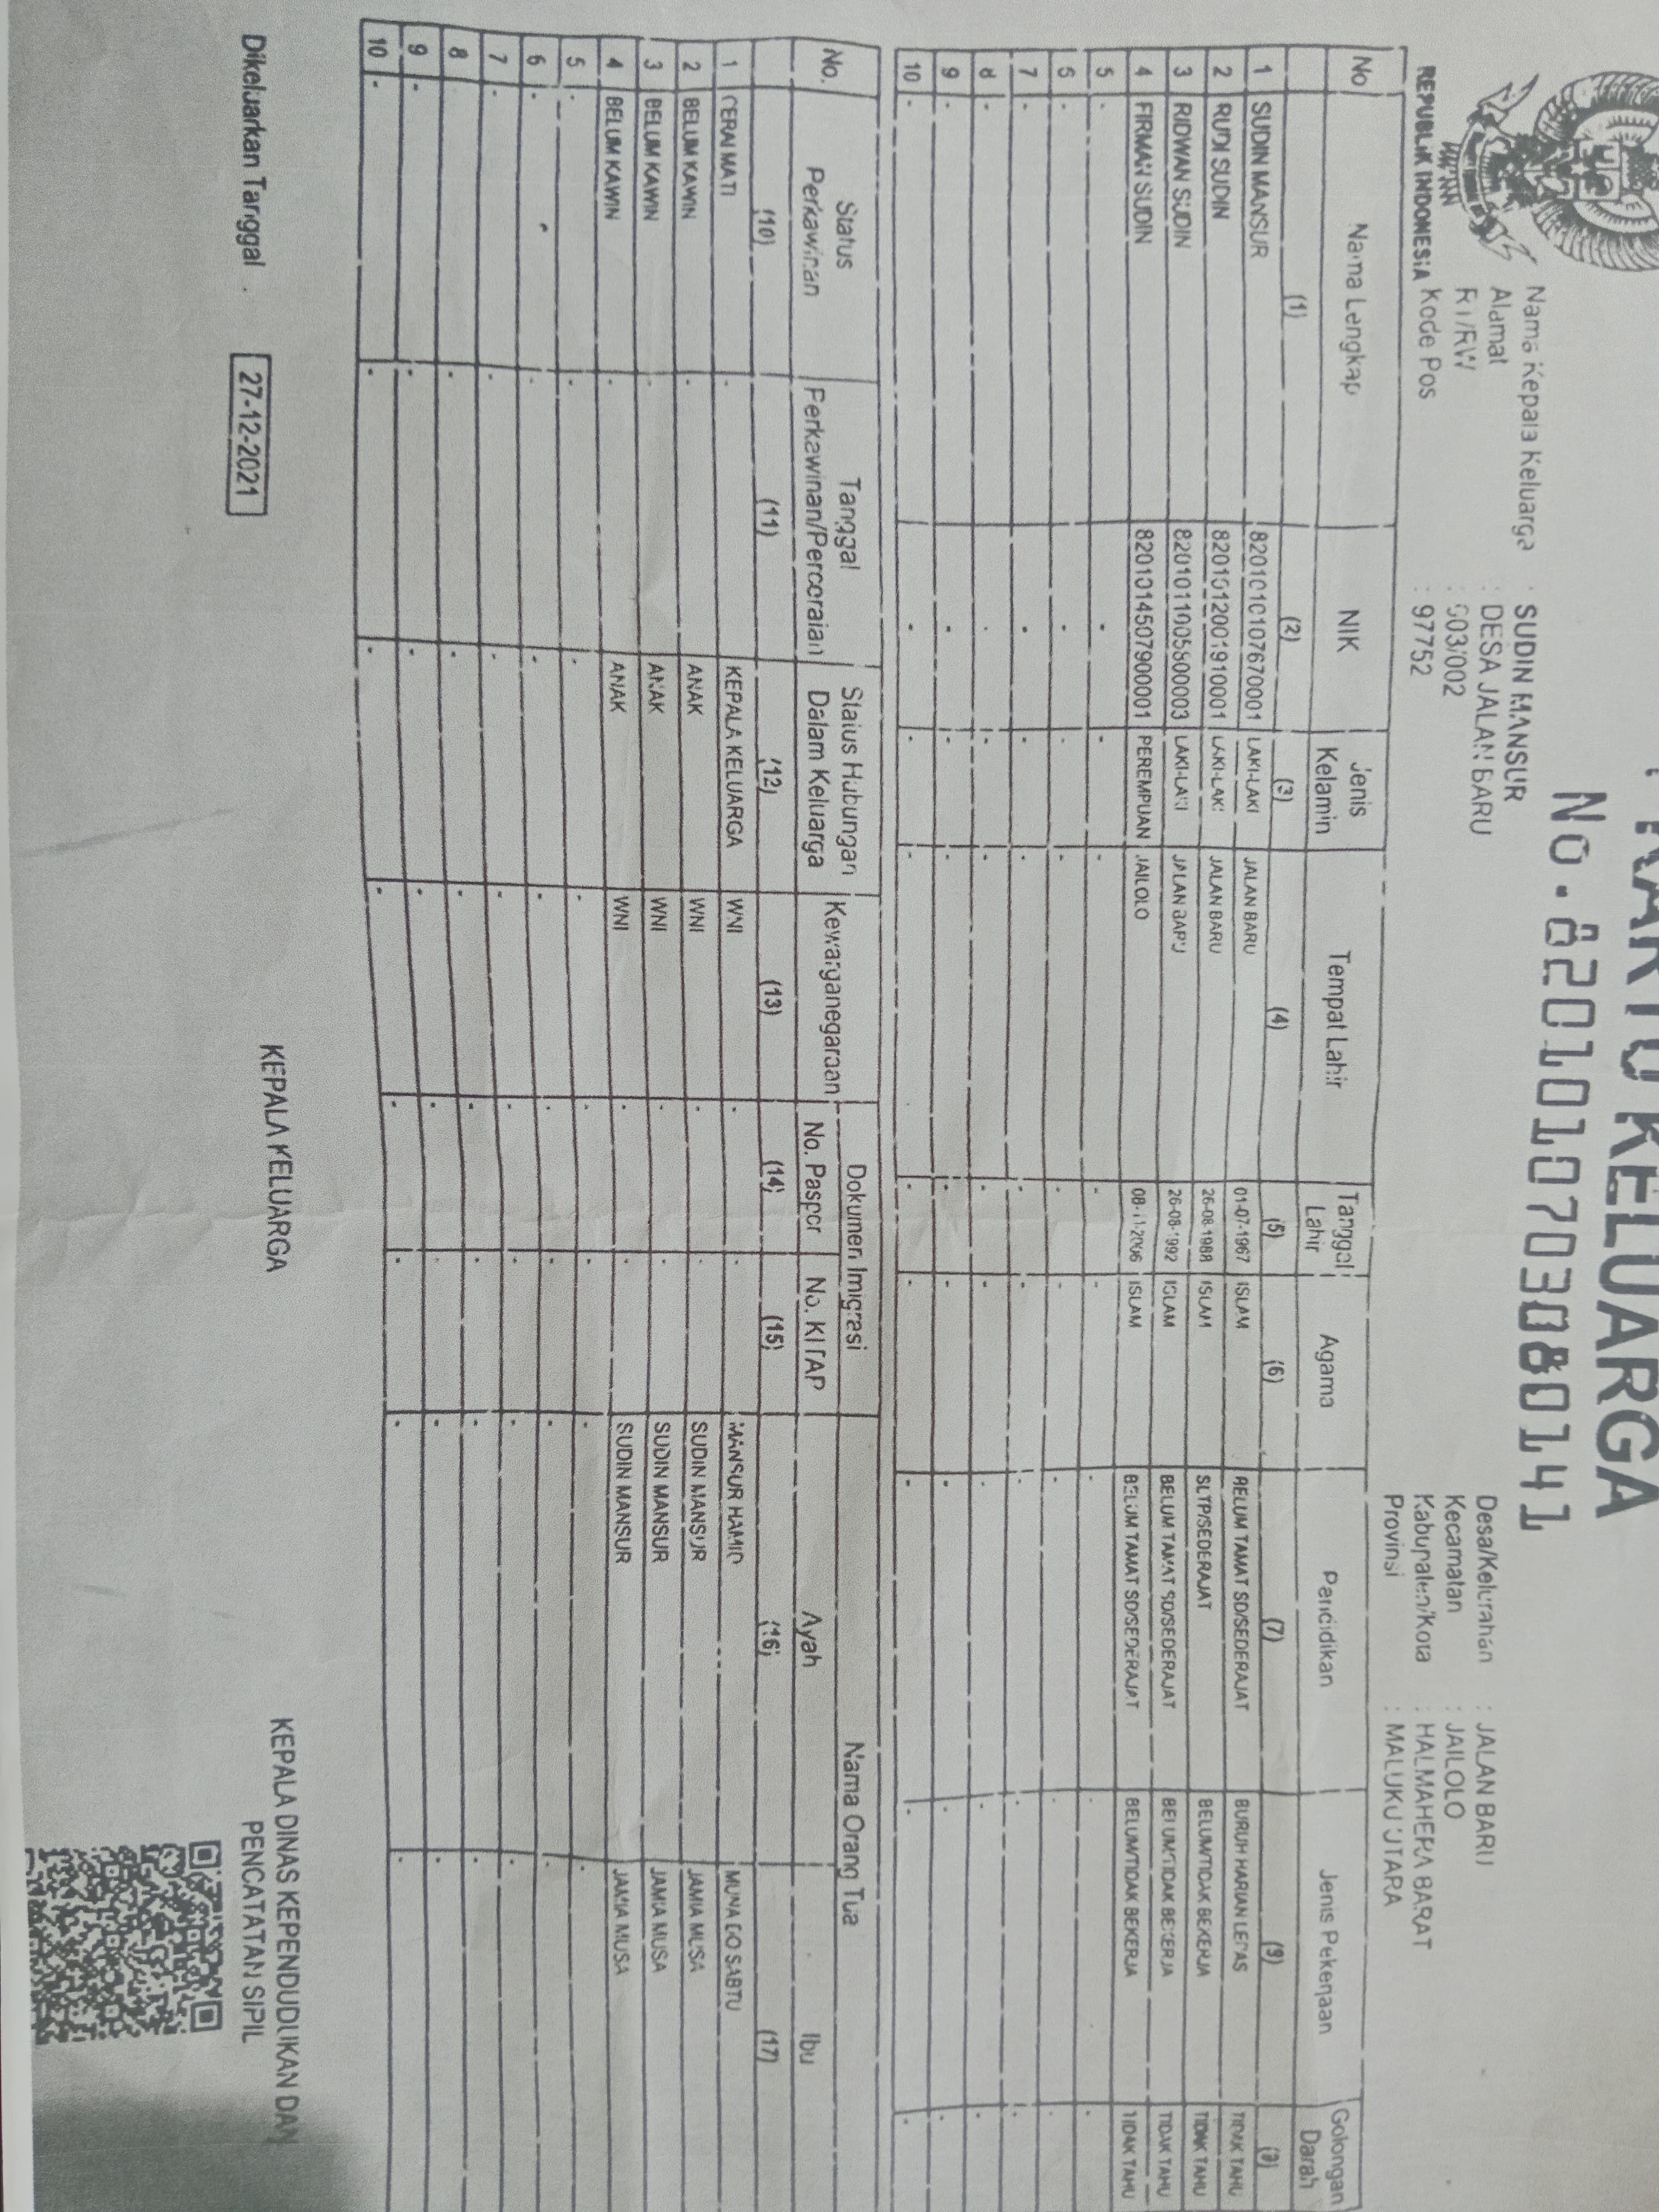 KARTU KELUARGA
No. 8201010703080141
REPUBLIK INDONESIA
Nama Kepala Keluarga : SUDIN MANSUR
Alamat : DESA JALAN BARU
RT/RW : 003/002
Kode Pos : 97752
Desa/Kelurahan : JALAN BARU
Kecamatan : JAILOLO
Kabupaten/Kota : HALMAHERA BARAT
Provinsi : MALUKU UTARA
No Nama Lengkap NIK Jenis Kelamin Tempat Lahir Tanggal Lahir Agama Pendidikan Jenis Pekerjaan Golongan Darah
(1) (2) (3) (4) (5) (6) (7) (8) (9)
1 SUDIN MANSUR 8201010107670001 LAKI-LAKI JALAN BARU 01-07-1967 ISLAM BELUM TAMAT SD/SEDERAJAT BURUH HARIAN LEPAS TIDAK TAHU
2 RUDI SUDIN LAKI-LAKI JALAN BARU 26-08-1988 ISLAM SLTP/SEDERAJAT BELUM/TIDAK BEKERJA TIDAK TAHU
3 RIDWAN SUDIN LAKI-LAKI JALAN BARU 26-08-1992 ISLAM BELUM TAMAT SD/SEDERAJAT BELUM/TIDAK BEKERJA TIDAK TAHU
4 FIRMAN SUDIN 8201014507900001 PEREMPUAN JAILOLO 08-11-2006 ISLAM BELUM TAMAT SD/SEDERAJAT BELUM/TIDAK BEKERJA TIDAK TAHU
5 - - - - - - - - -
6 - - - - - - - - -
7 - - - - - - - - -
8 - - - - - - - - -
9 - - - - - - - - -
10 - - - - - - - - -
No. Status Perkawinan Tanggal Perkawinan/Perceraian Status Hubungan Dalam Keluarga Kewarganegaraan Dokumen Imigrasi Nama Orang Tua
No. Paspor No. KITAP Ayah Ibu
(10) (11) (12) (13) (14) (15) (16) (17)
1 CERAI MATI - KEPALA KELUARGA WNI - - MANSUR HAMID MUNA GO SABTU
2 BELUM KAWIN - ANAK WNI - - SUDIN MANSUR JAMIA MUSA
3 BELUM KAWIN - ANAK WNI - - SUDIN MANSUR JAMIA MUSA
4 BELUM KAWIN - ANAK WNI - - SUDIN MANSUR JAMIA MUSA
5 - - - - - - - -
6 - - - - - - - -
7 - - - - - - - -
8 - - - - - - - -
9 - - - - - - - -
10 - - - - - - - -
Dikeluarkan Tanggal : 27-12-2021
KEPALA KELUARGA
KEPALA DINAS KEPENDUDUKAN DAN
PENCATATAN SIPIL